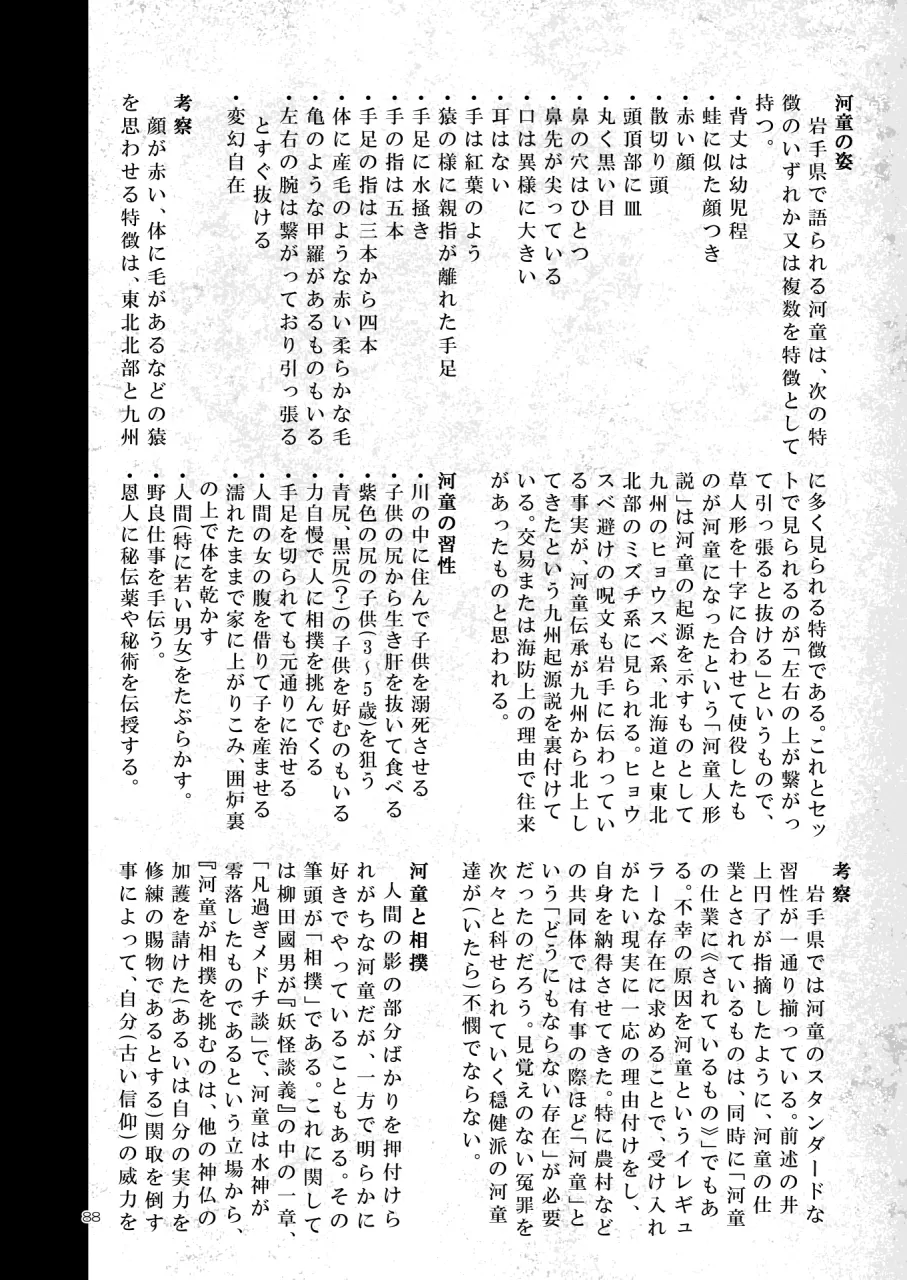 河童の姿
岩手県で語られる河童は、次の特
徴のいずれか又は複数を特徴として
持つ。
・背丈は幼児程
・蛙に似た顔つき
・赤い顔
・散切り頭
・頭頂部に皿
・丸く黒い目
・鼻の穴はひとつ
・鼻先が尖っている
・口は異様に大きい
・耳はない
・手は紅葉のよう
・猿の様に親指が離れた手足
・手足に水掻き
・手の指は五本
・手足の指は三本から四本
・体に産毛のような赤い柔らかな毛
・亀のような甲羅があるものもいる
・左右の腕は繋がっており引っ張る
とすぐ抜ける
・変幻自在
考察
顔が赤い、体に毛があるなどの猿
を思わせる特徴は、東北北部と九州
に多く見られる特徴である。これとセッ
トで見られるのが「左右の上が繋がっ
て引っ張ると抜ける」というもので、
草人形を十字に合わせて使役したも
のが河童になったという「河童人形
説」は河童の起源を示すものとして
九州のヒョウスベ系、北海道と東北
北部のミズチ系に見られる。ヒョウ
スベ避けの呪文も岩手に伝わってい
る事実が、河童伝承が九州から北上し
てきたという九州起源説を裏付けて
いる。交易または海防上の理由で往来
があったものと思われる。
河童の習性
・川の中に住んで子供を溺死させる
・子供の尻から生き肝を抜いて食べる
・紫色の尻の子供(3～5歳)を狙う
・青尻、黒尻(?)の子供を好むのもいる
・力自慢で人に相撲を挑んでくる
・手足を切られても元通りに治せる
・人間の女の腹を借りて子を産ませる
・濡れたままで家に上がりこみ、囲炉裏
の上で体を乾かす
・人間(特に若い男女)をたぶらかす。
・野良仕事を手伝う。
・恩人に秘伝薬や秘術を伝授する。
考察
岩手県では河童のスタンダードな
習性が一通り揃っている。前述の井
上円了が指摘したように、河童の仕
業とされているものは、同時に「河童
の仕業に《されているもの》」でもあ
る。不幸の原因を河童というイレギュ
ラーな存在に求めることで、受け入れ
がたい現実に一応の理由付けをし、
自身を納得させてきた。特に農村など
の共同体では有事の際ほど「河童」と
いう「どうにもならない存在」が必要
だったのだろう。見覚えのない冤罪を
次々と科せられていく穏健派の河童
達が(いたら)不憫でならない。
河童と相撲
人間の影の部分ばかりを押付けら
れがちな河童だが、一方で明らかに
好きでやっていることもある。その
筆頭が「相撲」である。これに関して
は柳田國男が『妖怪談義』の中の一章、
「凡過ぎメドチ談」で、河童は水神が
零落したものであるという立場から、
『河童が相撲を挑むのは、他の神仏の
加護を請けた(あるいは自分の実力を
修練の賜物であるとする)関取を倒す
事によって、自分(古い信仰)の威力を
88